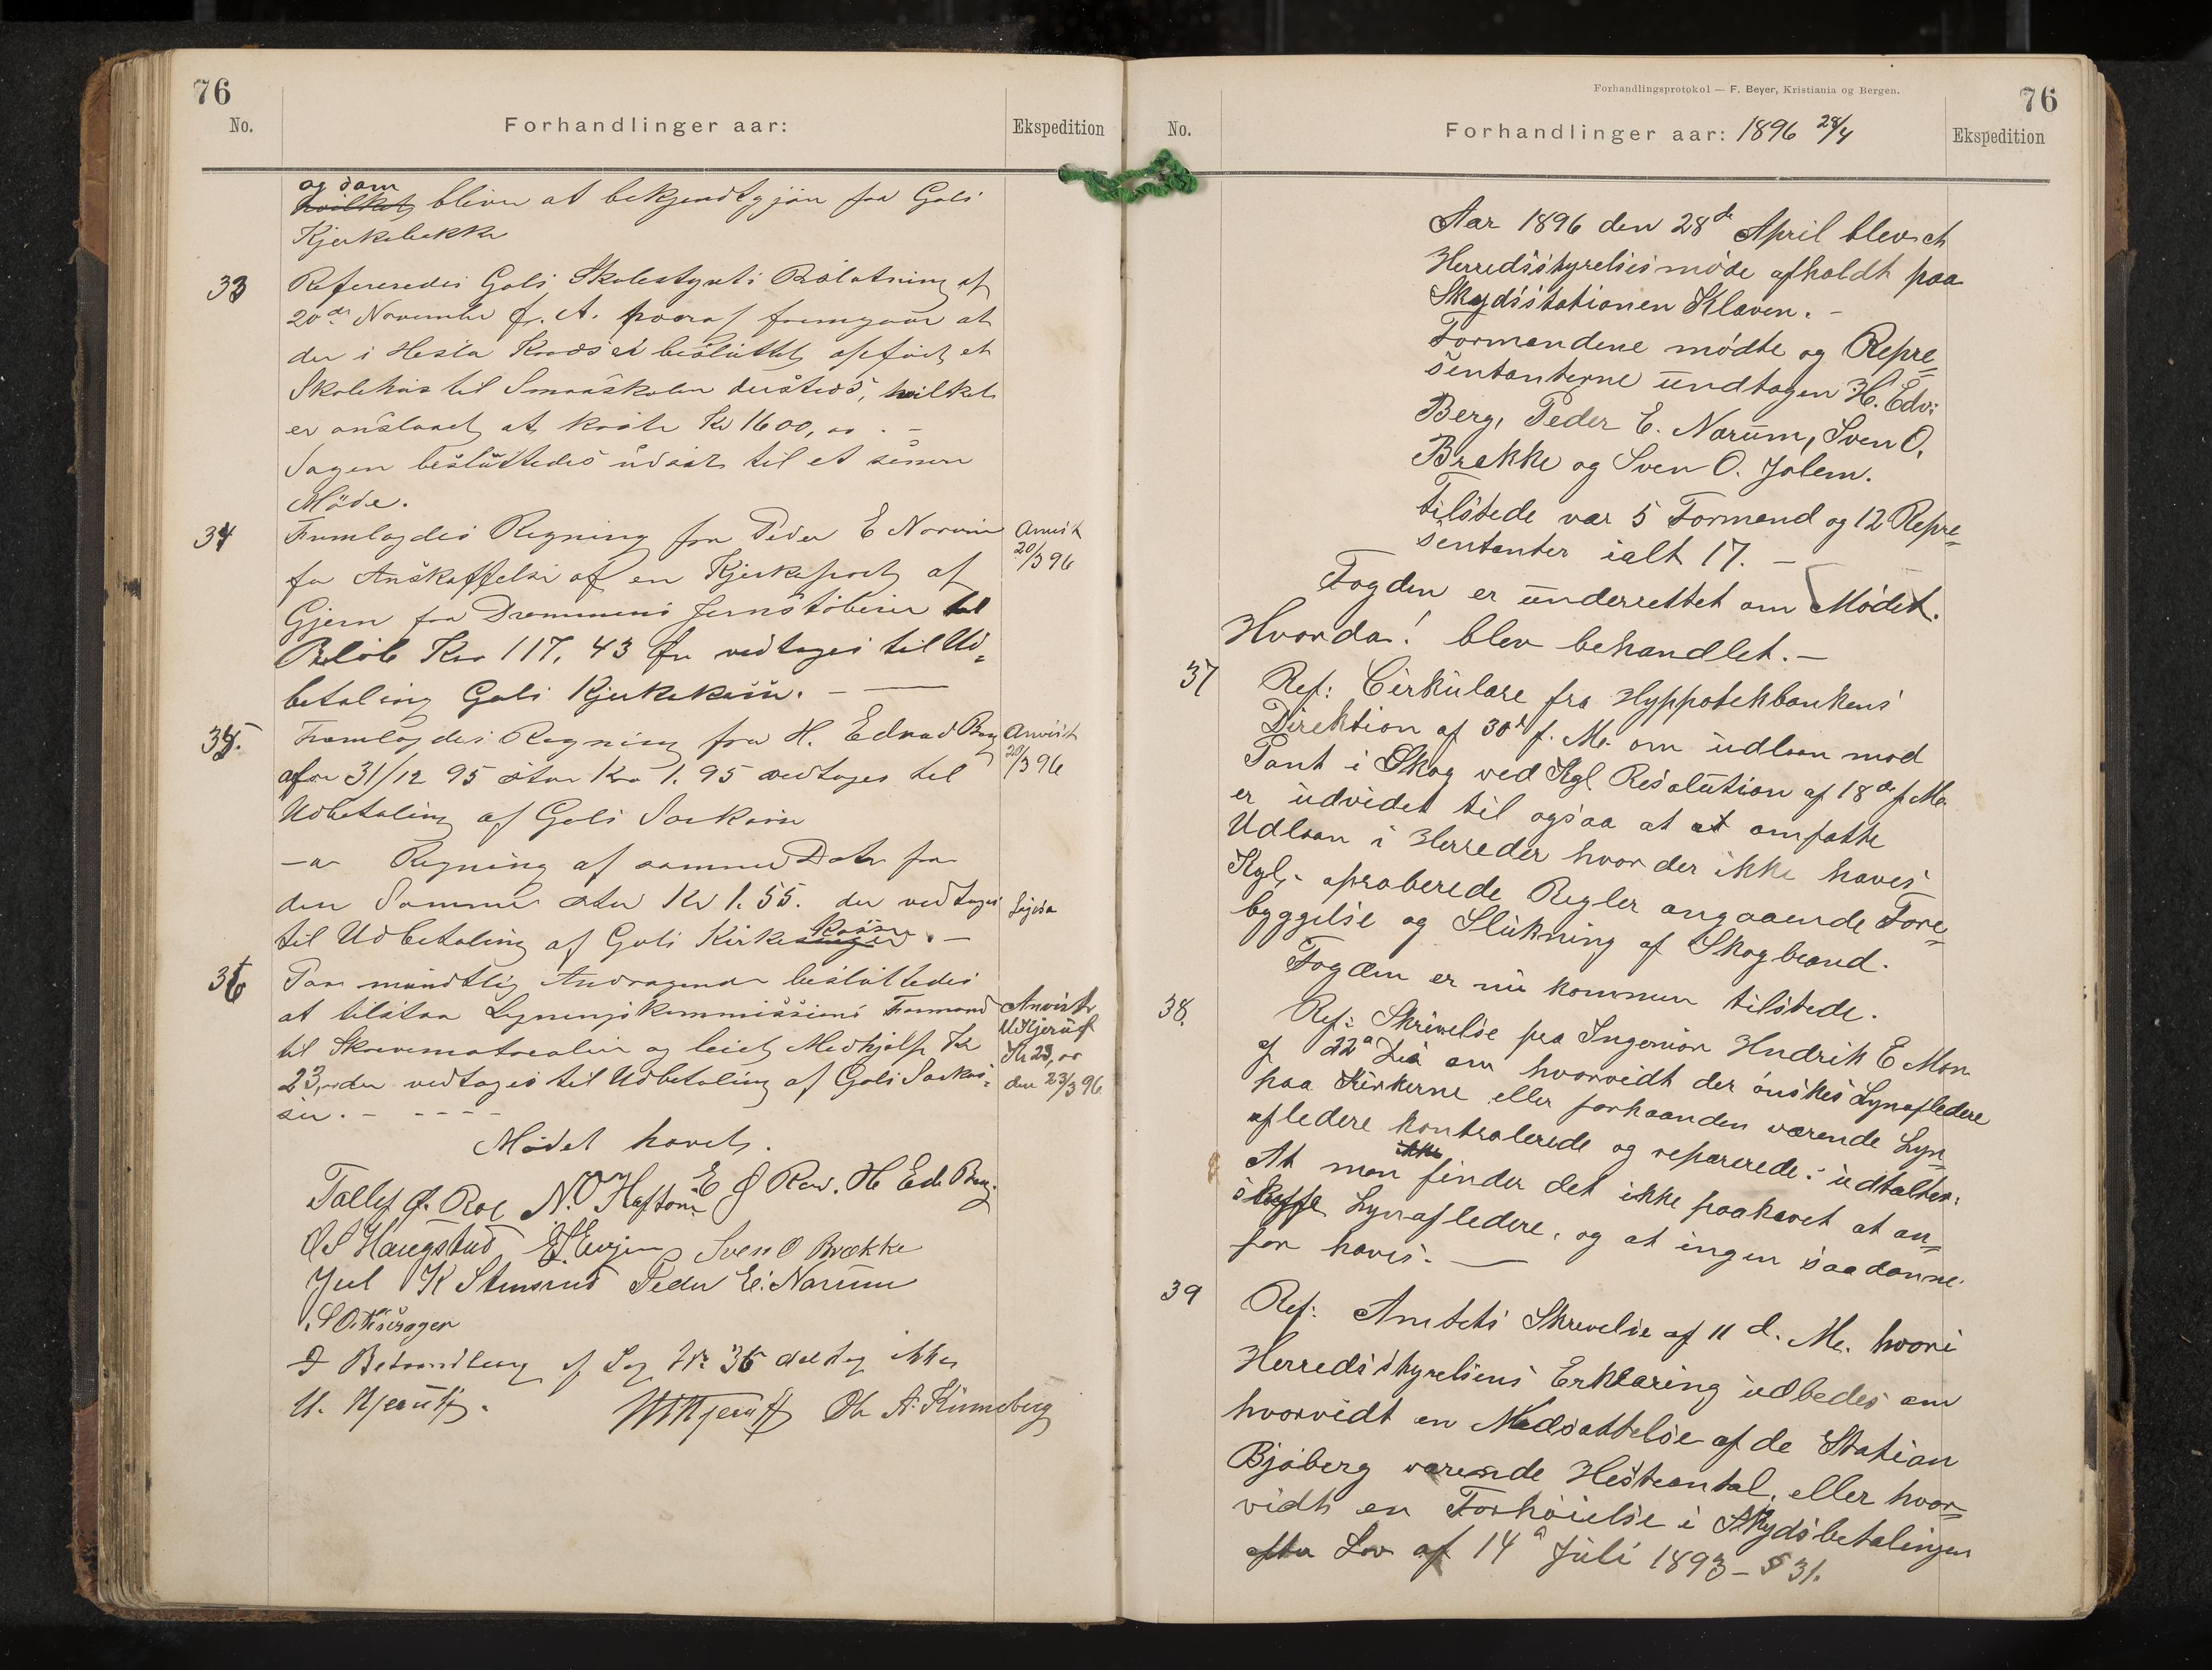 76
No.
Forhandlinger aar:
Ekspedition
og som
hvilket bliver at bekjendtgjøre fra Gols
Kjerkebakke
33
Refereredes Gols Skolestyrets Beslutning af
20de November f. A. hvoraf fremgaar at
der i Hesla Kreds er besluttet opført et
Skolehus til Smaaskolen dersteds, hvilket
er anslaaet at koste Kr 1600,00. –
Sagen besluttedes udsat til et senere
Møde.
34
Fremlagdes Regning fra Peder E Narum
for Anskaffelse af en Kjerkeport af
Gjern fra Drammens Jernstøberi til
Beløb Kro 117,43 Øre vedtages til Ud=
betaling Gols Kjerkekasse. –
Anvist
20/3 96
35.
Fremlagdes Regning fra H. Edvard Berg
for 31/12 95 stor Kro 1.95 vedtages til
Udbetaling af Gols
Anvist
20/3 96
Regning af samme Dato fra
den Samme stor Kr 1.55. der vedtages
til Udbetaling af Gols Kirke kasse. –
36
Paa mundtlig Andragende besluttedes
at tilstaa Ligningskommissions Formand
til Skrivematrealier og leiet Medhjælp Kr
23,00 der vedtages til Udbetaling af Gols
Anvist
U Kjerulf
Kr 23,00
den 23/3 96
Mødet hævet.
Tollef O. Roe N. O Haftorn E O Roe. H Edv Berg.
O S Haugstad Sven O Brække
Juel K Stensrud Peder E. Narum
I Behandling af Sag No 36 deltog ikke
U. Kjerulf. U Kjerulf Ole A. Kinneberg
Forhandlingsprotokol — F. Beyer, Kristiania og Bergen.
76
No.
Forhandlinger aar: 1896 28/4
Ekspedition
Aar 1896 den 28de April blev et
Herredsstyrelsesmøde afholdt paa
Skydsstationen Kløven. –
Formændene mødte og Repre=
sentanterne undtagen H. Edv:
Berg, Peder E. Narum, Sven O.
Brække og Sven O. Jolem.
Tilstede var 5 Formænd og 12 Repre=
sentanter ialt 17. –
Fogden er underrettet om Mødet.
Hvorda! blev behandlet. –
37
Ref: Cirkulære fra Hyppothekbankens
Direktion af 30d f. M. om udlaan mod
Pant i Skog ved Kgl Resolution af 18de f. M.
er udvidet til ogsaa at at omfatte
Udlaan i Herreder hvor der ikke haves
Kgl. aproberede Regler angaaende Fore=
byggelse og Slukning af Skogbrand.
Fogden er nu kommen tilstede.
38.
Ref: Skrivelse fra Ingeniør Hendrik E Mon
af 22d om hvorvidt der ønskes Lynafledere
paa Kirkerne eller forhaanden værende Lyn=
afledere kontrolerede og reparerede: udtaltes:
ikke
At man finder det ikke paakrævet at an=
skaffe Lynafledere, og at ingen saadanne
for haves. –
39
Ref: Amtets Skrivelse af 11 d. M. hvori
Herredsstyrelsens Erklæring udbedes om
hvorvidt en Nedsættelse af de Station
Bjøberg værende Hesteantal, eller hvor=
vidt en Forhøielse i Skydsbetalingen
efter Lov af 14d Juli 1893 – § 31.